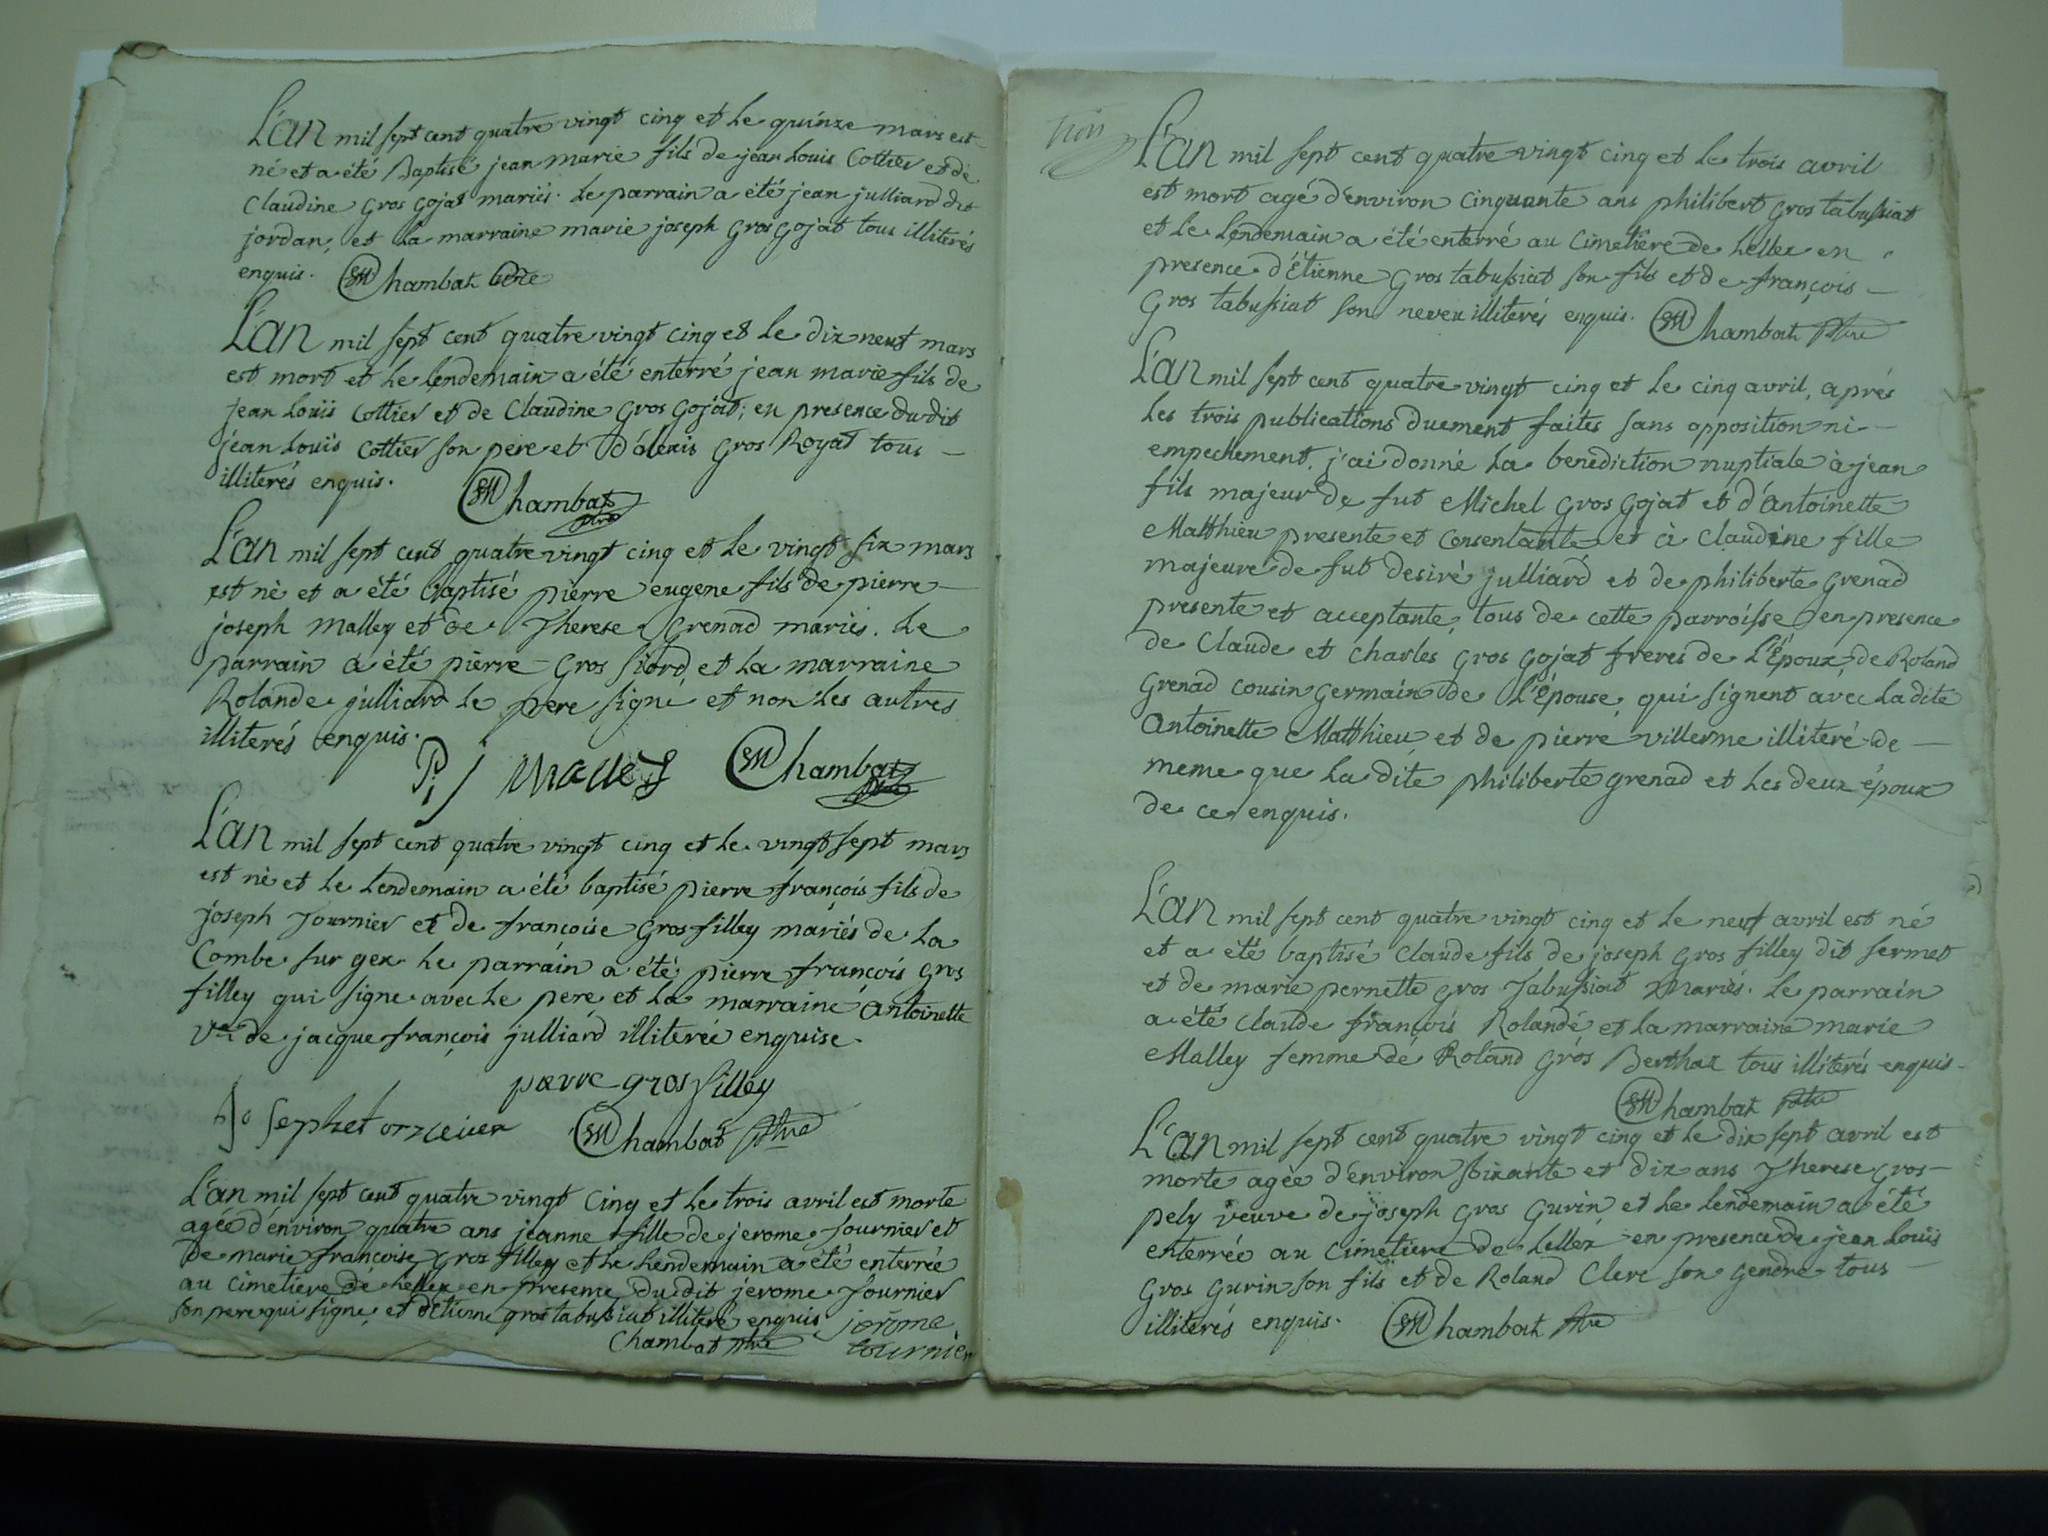 L'an mil sept cent quatre vingt cinq et le quinze mars est
né et a été Baptisé jean marie fils de jean Louis Cottier et de
Claudine gros gojat mariés. le parrain a été jean julliard dit
jordan, et la marraine marie joseph gros gojat tous illiterés
enquis. Chambat
L'an mil sept cent quatre vingt cinq et le dix neuf mars
est mort et le lendemain a été enterré jean marie fils de
jean Louis Cottier et de Claudine gros gojat; en presence dudit
jean Louis Cottier son pere et d'alexis gros Royat tous
illiterés enquis. Chambat ptre
L'an mil sept cent quatre vingt cinq et le vingt six mars
est né et a été baptisé pierre eugene fils de pierre
joseph Malley et de Therese Grenad mariés. le
parrain a été pierre gros fiord et la marraine
Rolande julliard le pere signe et non les autres
illiterés enquis.
P j Malley Chambat ptre
L'an mil sept cent quatre vingt cinq et le vingt sept mars
est né et le lendemain a été baptisé pierre françois fils de
joseph Tournier et de françoise gros filley mariés de la
Combe sur gex le parrain a été pierre françois gros
filley qui signe avec le pere et la marraine Antoinette
Ve de jacque françois julliard illiterée enquise.
pierre gros filley
Chambat ptre
L'an mil sept cent quatre vingt cinq et le trois avril est morte
agée d'environ quatre ans jeanne fille de jerome Tournier et
de marie françoise gros filley et le lendemain a été enterrée
au cimetiere de Lellex en presence dudit jerome Tournier
son pere qui signe, et d'Etienne gros tabussiat illiteré enquis jerome
Chambat ptre tournier
L'an mil sept cent quatre vingt cinq et le trois avril
est mort agé d'environ cinquante ans philibert gros tabussiat
et le lendemain a été enterré au cimetiere de Lellex en
presence d'Etienne gros tabussiat son fils et de françois
gros tabussiat son neveu illiterés enquis. Chambat ptre
L'an mil sept cent quatre vingt cinq et le cinq avril, aprés
les trois publications duement faites sans opposition ni
empechement, j'ai donné la benediction nuptiale à jean
fils majeur de fut Michel gros gojat et d'Antoinette
Matthieu presente et consentante et à Claudine fille
majeure de fut desiré julliard et de philiberte grenad
presente et acceptante, tous de cette parroisse en presence
de Claude et Charles gros gojat freres de l'Époux, de Roland
Grenad cousin germain de l'épouse, qui signent avec la dite
Antoinette Matthieu, et de pierre villerme illiteré de
meme que la dite philiberte grenad et les deux époux
de ce enquis.
L'an mil sept cent quatre vingt cinq et le neuf avril est né
et a été baptisé Claude fils de joseph gros filley dit fermet
et de marie pernette gros Tabussiat mariés. le parrain
a été Claude françois Rolandé et la marraine marie
Malley femme de Roland gros Berthaz tous illiterés enquis
Chambat ptre
L'an mil sept cent quatre vingt cinq et le dix sept avril est
morte agée d'environ soixante et dix ans Therese gros
pely veuve de joseph gros Gurin et le lendemain a été
enterrée au cimetiere de Lellex en presence de jean Louis
gros gurin son fils et de Roland Clerc son gendre tous
illiterés enquis. Chambat ptre